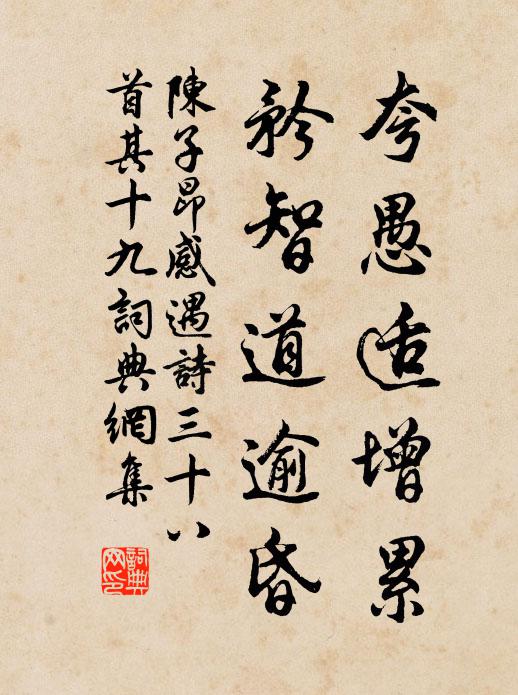 夸愚适增累
矜智道逾昏
陳子昂感遇詩三十八
首其十九詞典網集
詞典网印